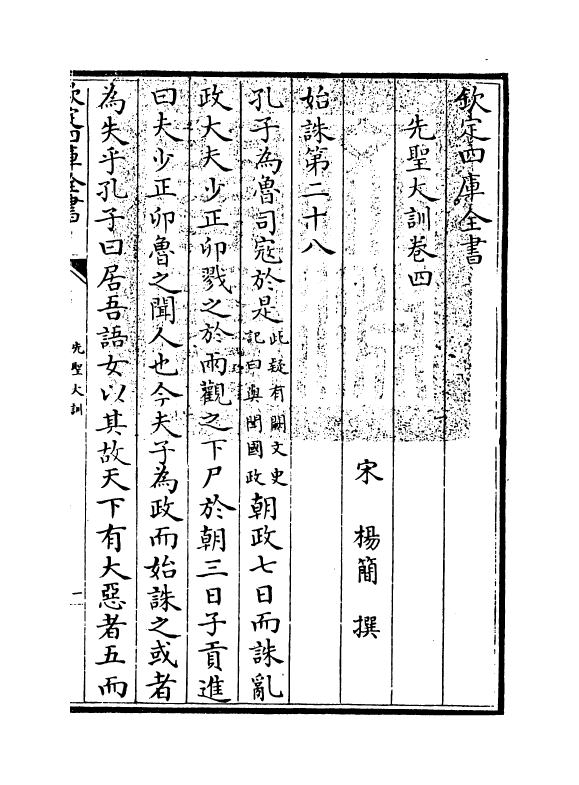 欽定四庫全書
先聖大訓卷四
宋 楊簡 撰
始誅第二十八
孔子為魯司寇於是此疑有闕文史記曰與聞國政朝政七日而誅亂
政大夫少正卯戮之於兩觀之下尸於朝三日子貢進
曰夫少正卯魯之聞人也今夫子為政而始誅之或者
為失乎孔子曰居吾語女以其故天下有大惡者五而
欽定四庫全書
先聖大訓
一